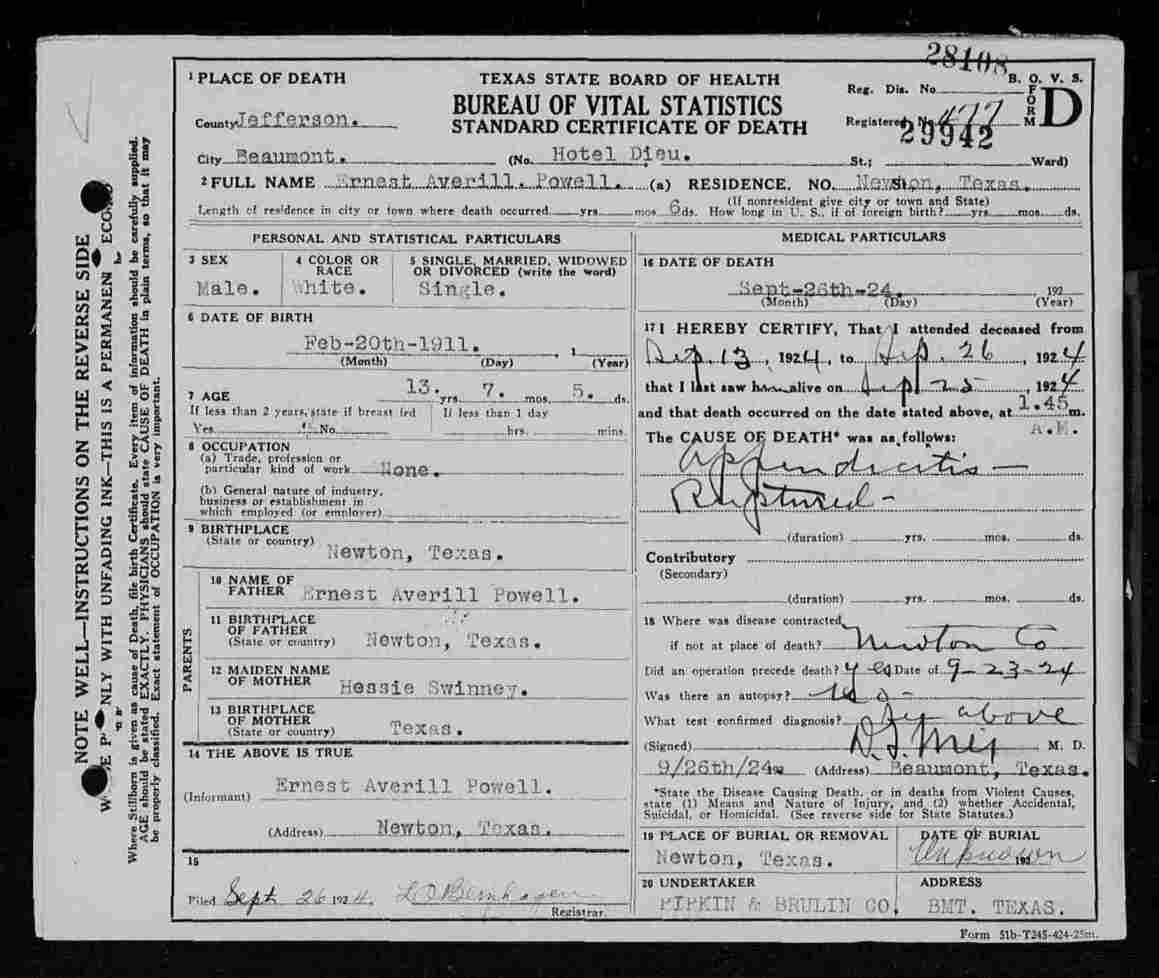 28108
1 PLACE OF DEATH
TEXAS STATE BOARD OF HEALTH
B. O. V. S.
BUREAU OF VITAL STATISTICS
Reg. Dis. No
FORM D
County Jefferson.
STANDARD CERTIFICATE OF DEATH
Registered No. 477
29942
City Beaumont. (No. Hotel Dieu. St.; Ward)
2 FULL NAME Ernest Averill. Powell. (a) RESIDENCE. NO. Newton, Texas. St.
(If nonresident give city or town and State)
Length of residence in city or town where death occurred yrs. mos. 6 ds. How long in U. S., if of foreign birth? yrs. mos. ds.
PERSONAL AND STATISTICAL PARTICULARS
3 SEX
Male.
4 COLOR OR RACE
White.
5 SINGLE, MARRIED, WIDOWED OR DIVORCED (write the word)
Single.
6 DATE OF BIRTH
Feb-20th-1911. , 1
(Month) (Day) (Year)
7 AGE 13. yrs. 7. mos. 5. ds.
If less than 2 years, state if breast fed
Yes No
If less than 1 day
hrs. mins.
8 OCCUPATION
(a) Trade, profession or
particular kind of work None.
(b) General nature of industry,
business or establishment in
which employed (or employer)
9 BIRTHPLACE
(State or country)
Newton, Texas.
PARENTS
10 NAME OF FATHER Ernest Averill Powell.
11 BIRTHPLACE OF FATHER
(State or country) Newton, Texas.
12 MAIDEN NAME OF MOTHER Hessie Swinney.
13 BIRTHPLACE OF MOTHER
(State or country) Texas.
14 THE ABOVE IS TRUE
(Informant) Ernest Averill Powell.
(Address) Newton, Texas.
15
Filed Sept 26 1924. Registrar.
MEDICAL PARTICULARS
16 DATE OF DEATH
Sept-26th-24. 192
(Month) (Day) (Year)
17 I HEREBY CERTIFY, That I attended deceased from
Sep. 13, 1924, to Sep. 26, 1924
that I last saw him alive on Sept 25, 1924
and that death occurred on the date stated above, at 1.45 m.
A.M.
The CAUSE OF DEATH* was as follows:
Appendicitis —
Ruptured -
(duration) yrs. mos. ds.
Contributory
(Secondary)
(duration) yrs. mos. ds.
18 Where was disease contracted,
if not at place of death? Newton Co
Did an operation precede death? yes Date of 9-23-24
Was there an autopsy? no -
What test confirmed diagnosis? by above
(Signed) M. D.
9/26th/24 (Address) Beaumont, Texas.
*State the Disease Causing Death, or in deaths from Violent Causes,
state (1) Means and Nature of Injury, and (2) whether Accidental,
Suicidal, or Homicidal. (See reverse side for State Statutes.)
19 PLACE OF BURIAL OR REMOVAL
Newton, Texas.
DATE OF BURIAL
Unknown 192
20 UNDERTAKER
PIPKIN & BRULIN CO.
ADDRESS
BMT. TEXAS.
Form 51b-T245-424-25m.
NOTE WELL—INSTRUCTIONS ON THE REVERSE SIDE
NLY WITH UNFADING INK—THIS IS A PERMANEN
Where Stillborn is given as cause of Death, file birth Certificate. Every item of information should be carefully supplied.
AGE should be stated EXACTLY. PHYSICIANS should state CAUSE OF DEATH in plain terms, so that it may
be properly classified. Exact statement of OCCUPATION is very important.